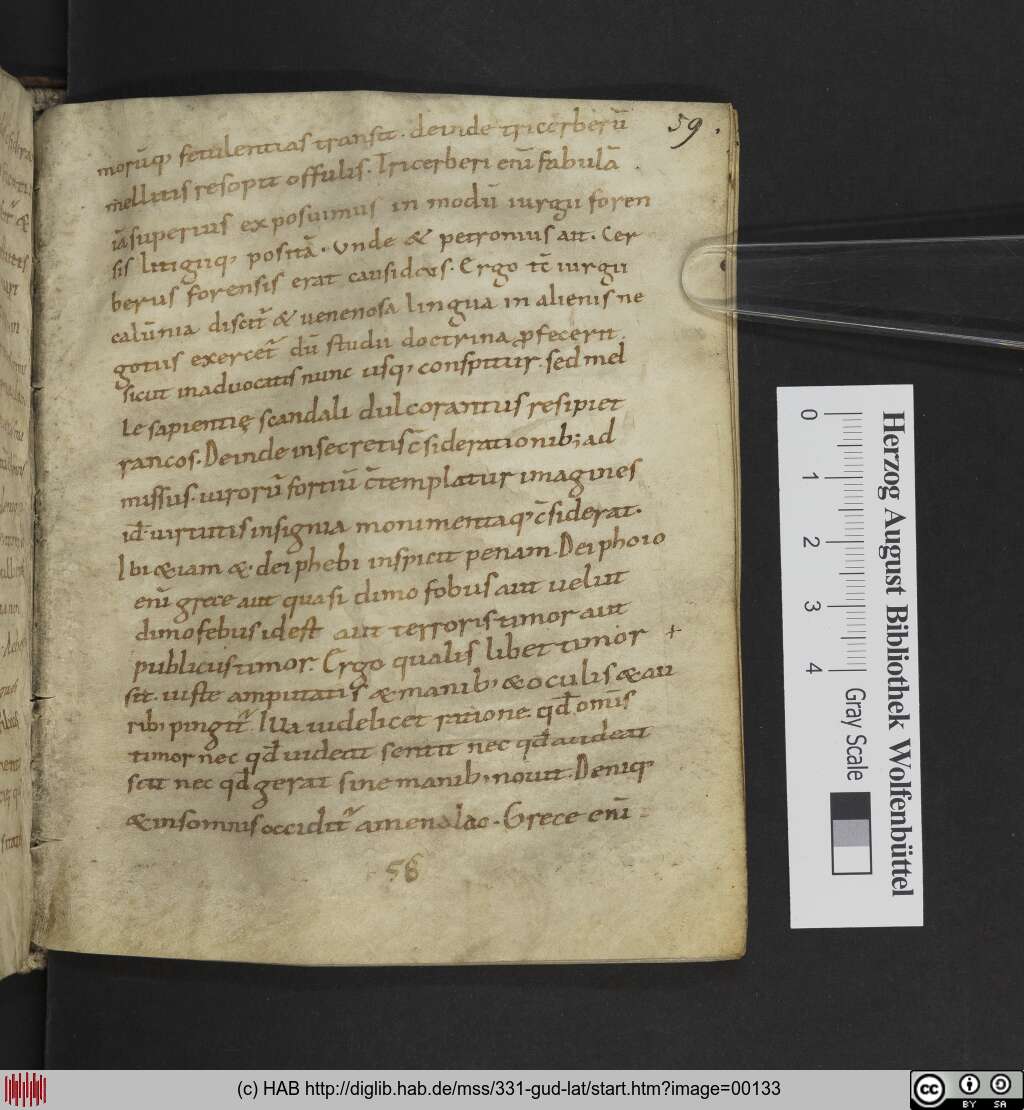 59.
morūq; fetulentias transit. deinde tricerberū
mellitis resopit offulis. Tricerberi enī fabulā
iā superius exposuimus in modū iurgii foren
sis litigiiq; positā. Unde & petronius ait. Cer
berus forensis erat causidcus. Ergo tc̄ iurgii
calūnia discit̄ & uenenosa lingua in alienis ne
gotiis exercet̄ dū studii doctrina ꝓfecerit
sicut in aduocatis nunc usq; conspitur. sed mel
le sapientię scandali dulcorantus resipiet
rancos. Deinde in secretis c̄siderationib; ad
missus. uirorū fortiū c̄templatur imagines
id ē uirtutis insignia monumentaq; c̄siderat.
Ibi &iam &. deiphebi inspicit penam. Deiphoio
enī grece aut quasi dimofobus aut uelut
dimofebus id est aut terroris timor aut
publicus timor. Ergo qualis libet timor +
sit. iuste amputatis & manib; & oculis & au
rib; pingit̄. Illa uidelicet ratione. qđ omīs
timor nec qđ uideat sentit nec qđ audeat
scit nec qđ gerat sine manib; nouit. Deniq;
& in somnis occidit̄ a menalao. Grece enī
58
0 1 2 3 4
Herzog August Bibliothek Wolfenbüttel
Gray Scale
(c) HAB http://diglib.hab.de/mss/331-gud-lat/start.htm?image=00133
cc BY SA